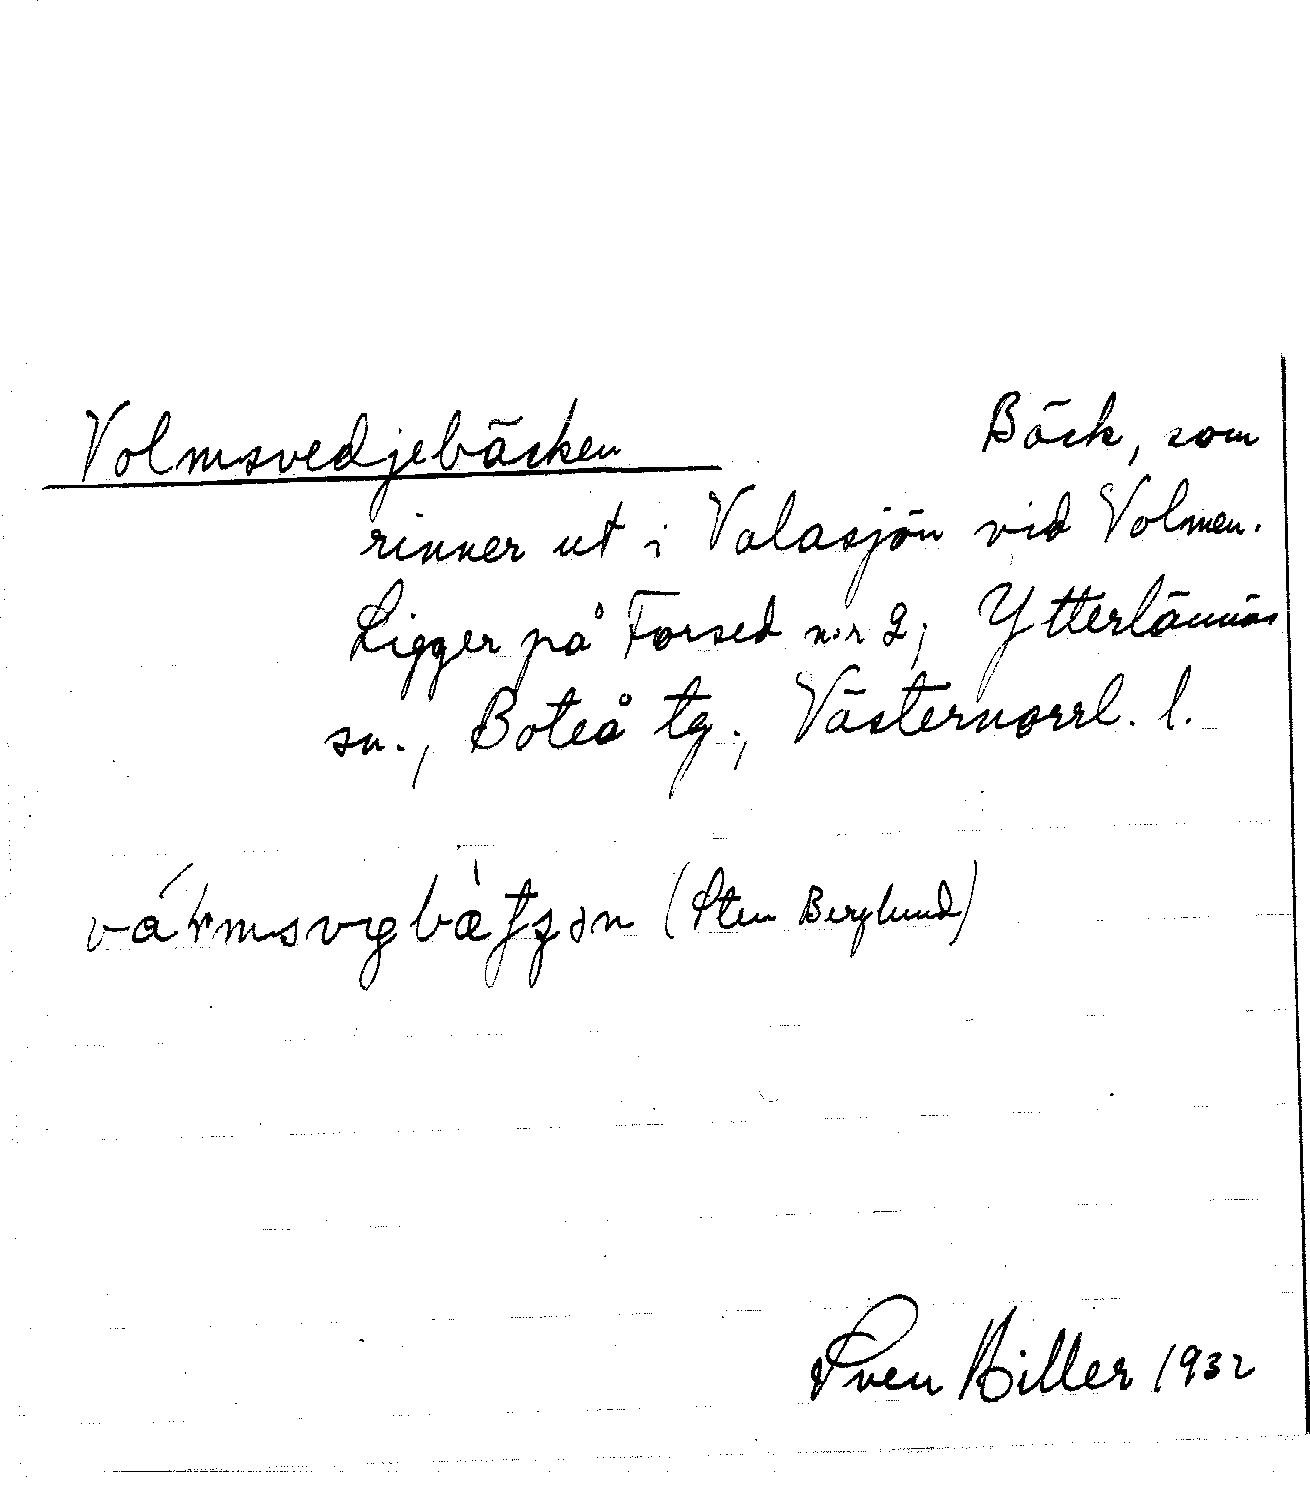 Volmsvedjebäcken Bäck, som
rinner ut i Valasjön vid Volmen.
Ligger på Forsed n:r 2, Ytterlännäs
sn., Boteå tg., Västernorrl. l.
(Sten Berglund)
Sven Hiller 1932